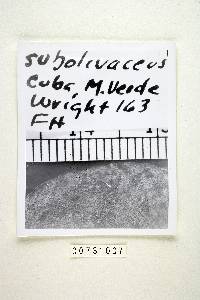 subolivaceus
Cuba, M. Verde
Wright 163
FH